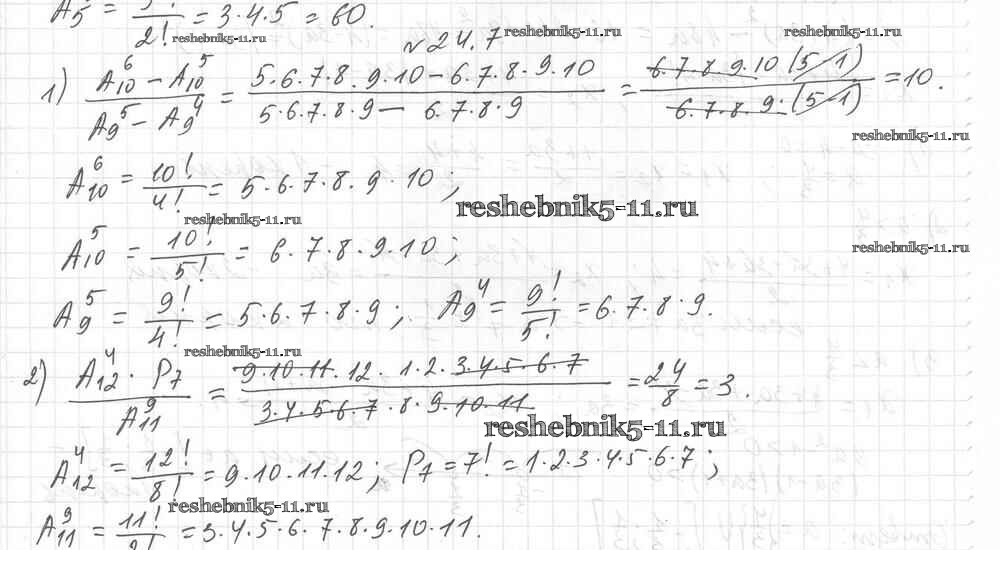 A₅³ = 5!/2! = 3·4·5 = 60.
reshebnik5-11.ru
№24.7 reshebnik5-11.ru reshebnik5-11.ru
1) (A₁₀⁶ − A₁₀⁵)/(A₉⁵ − A₉⁴) = (5·6·7·8·9·10 − 6·7·8·9·10)/(5·6·7·8·9 − 6·7·8·9) = (6·7·8·9·10(5−1))/(6·7·8·9·(5−1)) = 10.
reshebnik5-11.ru
A₁₀⁶ = 10!/4! = 5·6·7·8·9·10;
reshebnik5-11.ru
reshebnik5-11.ru
A₁₀⁵ = 10!/5! = 6·7·8·9·10;
reshebnik5-11.ru
A₉⁵ = 9!/4! = 5·6·7·8·9; A₉⁴ = 9!/5! = 6·7·8·9.
reshebnik5-11.ru
2) (A₁₂⁴ · P₇)/A₁₁⁹ = (9·10·11·12·1·2·3·4·5·6·7)/(3·4·5·6·7·8·9·10·11) = 24/8 = 3.
reshebnik5-11.ru
A₁₂⁴ = 12!/8! = 9·10·11·12; P₇ = 7! = 1·2·3·4·5·6·7;
reshebnik5-11.ru
A₁₁⁹ = 11!/2! = 3·4·5·6·7·8·9·10·11.